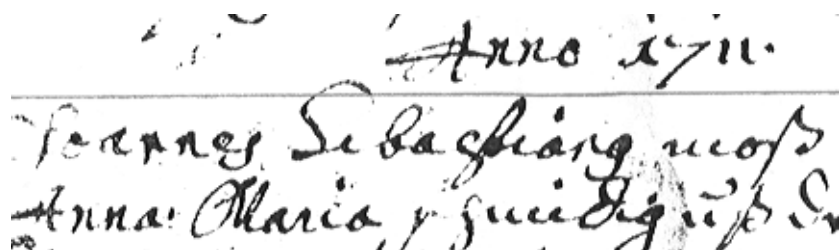 Anno 1711.
Joannes Sebastiang moß
Anna Maria